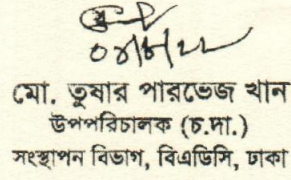 ০৪/৮/২২
মো. তুষার পারভেজ খান
উপপরিচালক (চ.দা.)
সংস্থাপন বিভাগ, বিএডিসি, ঢাকা